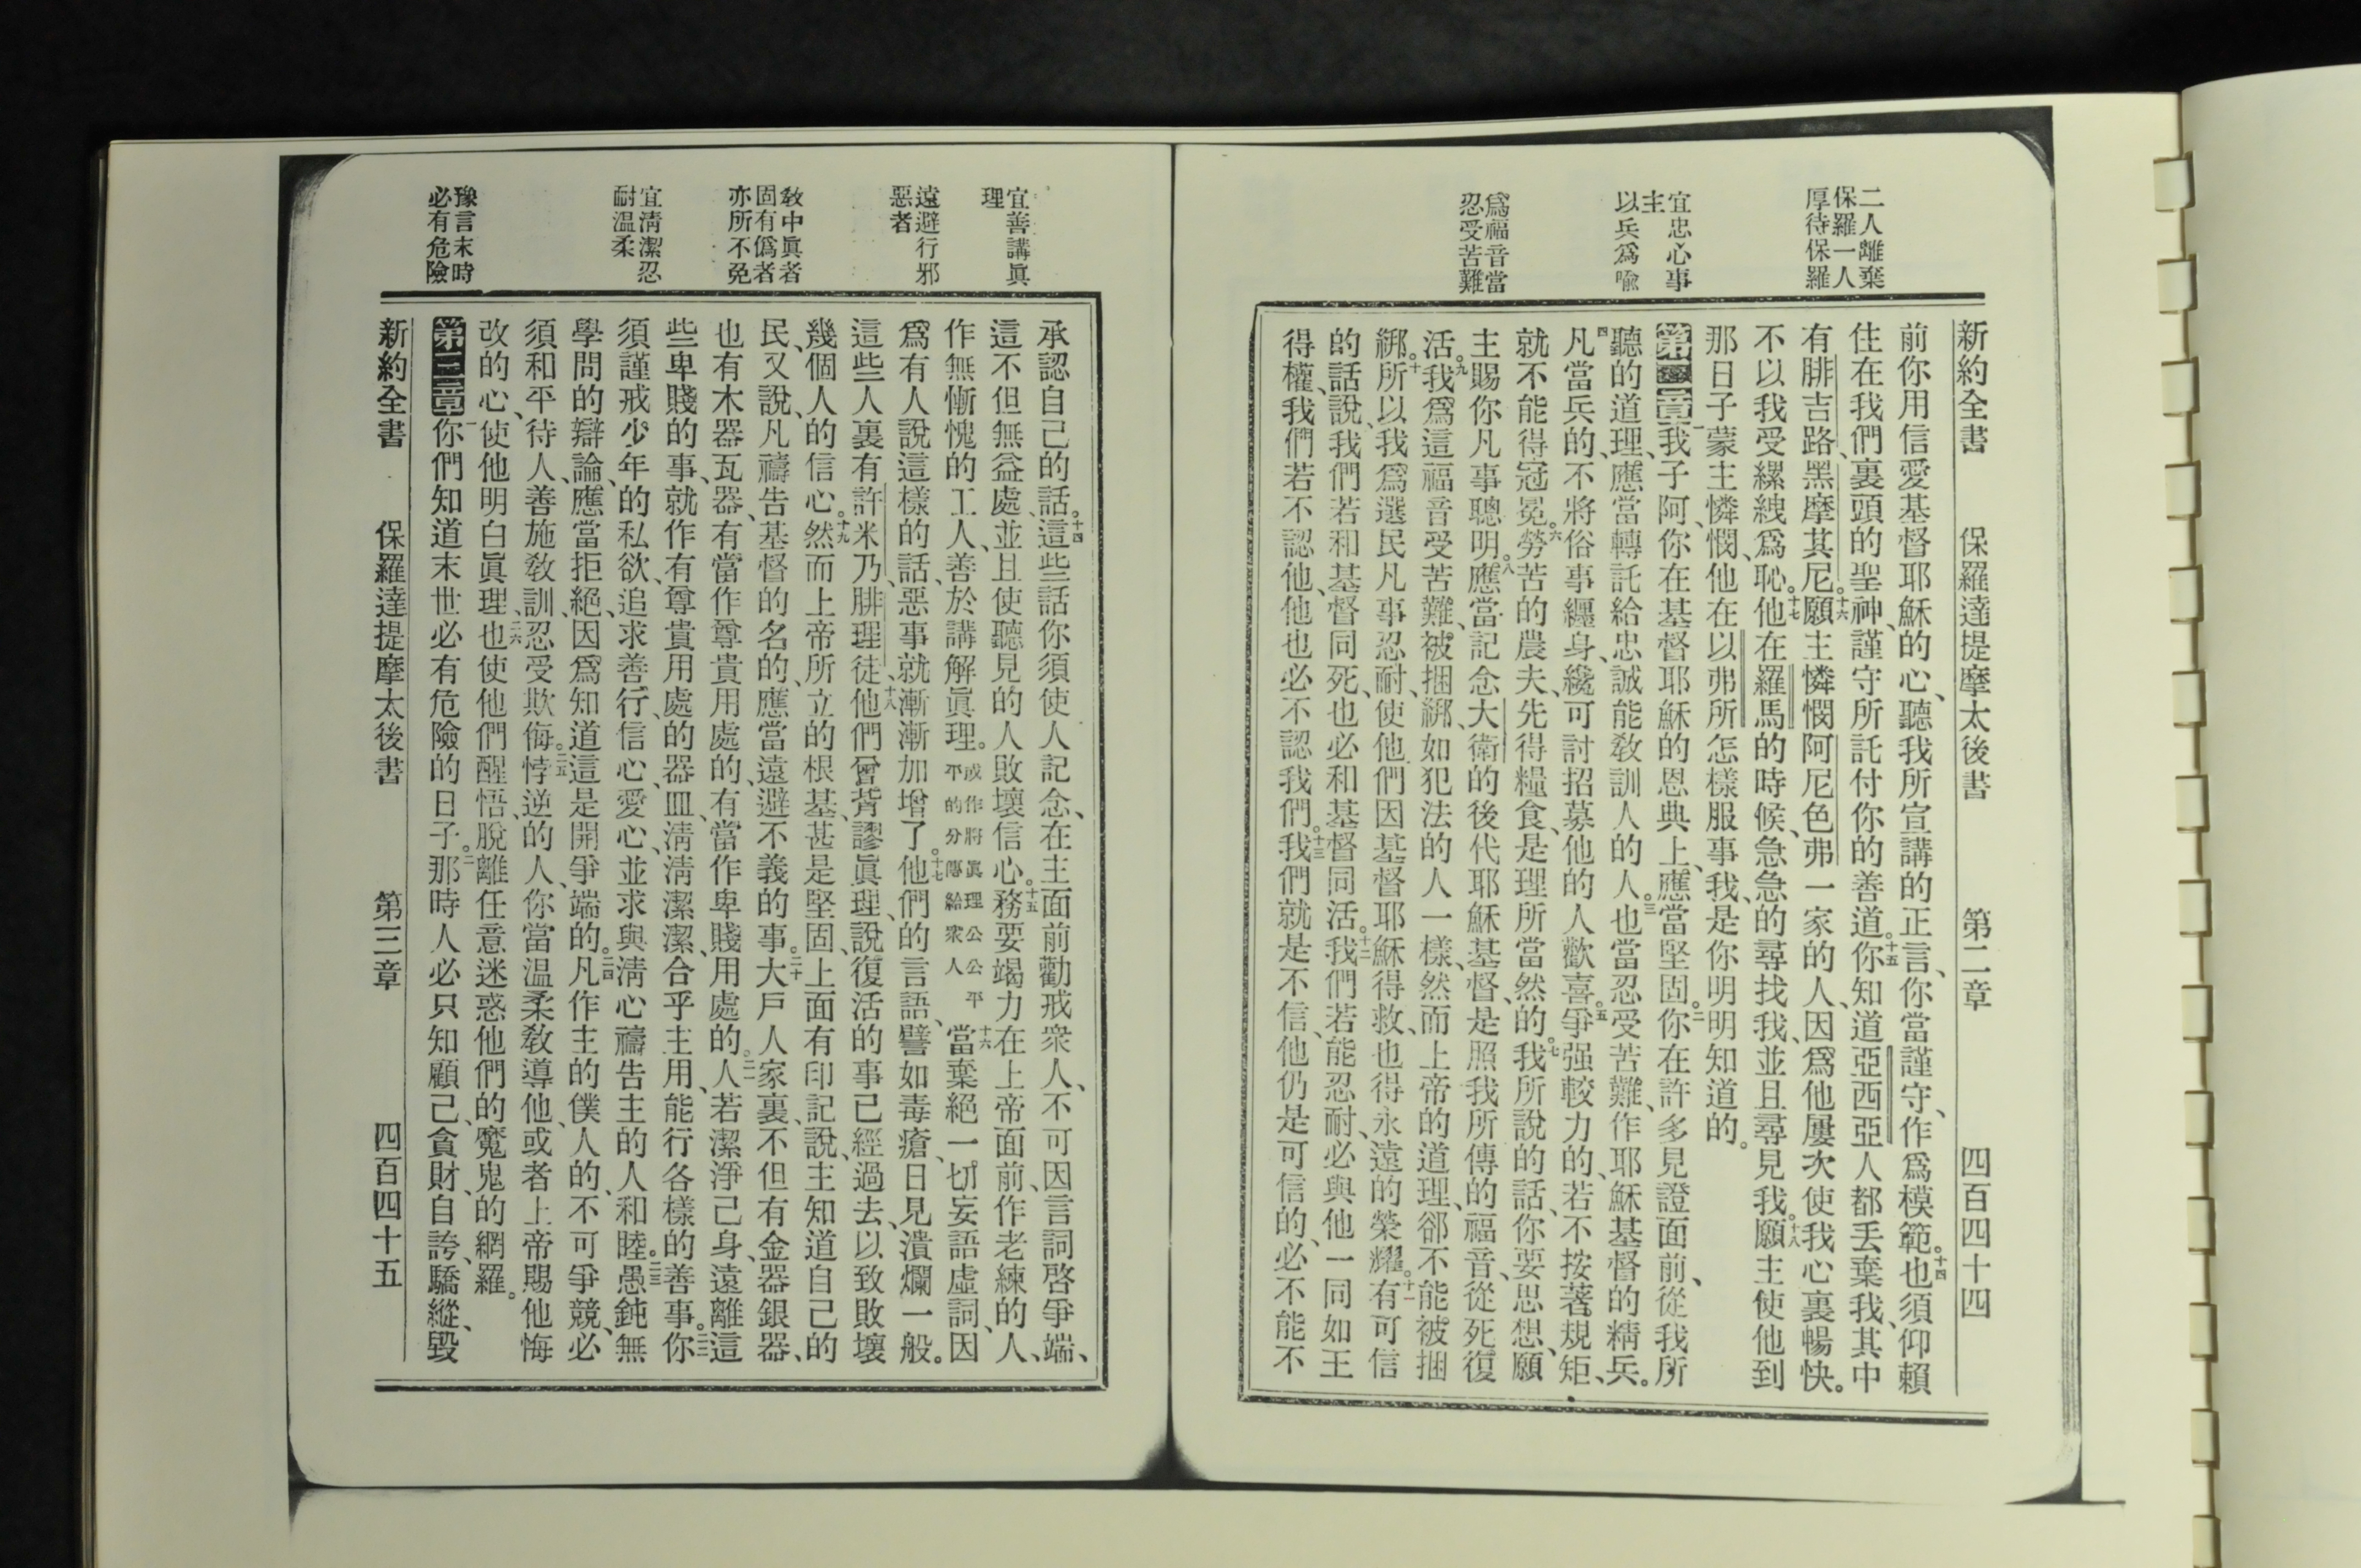 二人離棄
保羅一人
厚待保羅
宜忠心事
主
以兵爲喩
爲福音當
忍受苦難
新約全書 保羅達提摩太後書 第二章 四百四十四
前你用信愛基督耶穌的心、聽我所宣講的正言、你當謹守、作爲模範。十四也須仰賴
住在我們裏頭的聖神、謹守所託付你的善道。十五你知道亞西亞人都丟棄我、其中
有腓吉路、黑摩其尼。十六願主憐憫阿尼色弗一家的人、因爲他屢次使我心裏暢快。
不以我受縲絏爲恥。十七他在羅馬的時候、急急的尋找我、並且尋見我。十八願主使他到
那日子蒙主憐憫、他在以弗所怎樣服事我、是你明明知道的。
第二章一我子阿、你在基督耶穌的恩典上、應當堅固。二你在許多見證面前、從我所
聽的道理、應當轉託給忠誠能敎訓人的人。三也當忍受苦難、作耶穌基督的精兵。
四凡當兵的、不將俗事纏身、纔可討招募他的人歡喜。五爭强較力的、若不按著規矩、
就不能得冠冕。六勞苦的農夫、先得糧食、是理所當然的。七我所說的話、你要思想、願
主賜你凡事聰明。八應當記念大衛的後代耶穌基督、是照我所傳的福音、從死復
活。九我爲這福音受苦難、被捆綁、如犯法的人一樣、然而上帝的道理、卻不能被捆
綁。十所以我爲選民凡事忍耐、使他們因基督耶穌得救、也得永遠的榮耀。十一有可信
的話說、我們若和基督同死、也必和基督同活。十二我們若能忍耐、必與他一同如王
得權、我們若不認他、他也必不認我們。十三我們就是不信、他仍是可信的、必不能不
宜善講眞
理
遠避行邪
惡者
敎中眞者
固有僞者
亦所不免
宜淸潔忍
耐溫柔
豫言末時
必有危險
承認自己的話。十四這些話你須使人記念、在主面前勸戒衆人、不可因言詞啓爭端、
這不但無益處、並且使聽見的人敗壞信心。十五務要竭力在上帝面前、作老練的人、
作無慚愧的工人、善於講解眞理。或作將眞理公公平平的分傳給衆人十六當棄絕一切妄語虛詞、因
爲有人說這樣的話、惡事就漸漸加增了。十七他們的言語、譬如毒瘡、日見潰爛一般。
這些人裏有許米乃、腓理徒、十八他們曾背謬眞理、說復活的事已經過去、以致敗壞
幾個人的信心。十九然而上帝所立的根基、甚是堅固、上面有印記說、主知道自己的
民、又說、凡禱告基督的名的、應當遠避不義的事。二十大戶人家裏、不但有金器銀器、
也有木器瓦器、有當作尊貴用處的、有當作卑賤用處的。二一人若潔淨己身、遠離這
些卑賤的事、就作有尊貴用處的器皿、淸淸潔潔、合乎主用、能行各樣的善事。二二你
須謹戒少年的私欲、追求善行、信心、愛心、並求與淸心禱告主的人和睦。二三愚鈍無
學問的辯論、應當拒絕、因爲知道這是開爭端的。二四凡作主的僕人的、不可爭競、必
須和平待人、善施敎訓、忍受欺侮。二五悖逆的人、你當溫柔敎導他、或者上帝賜他悔
改的心、使他明白眞理、二六也使他們醒悟、脫離任意迷惑他們的魔鬼的網羅。
第三章一你們知道末世必有危險的日子。二那時人必只知顧己、貪財、自誇、驕縱、毀
新約全書 保羅達提摩太後書 第三章 四百四十五